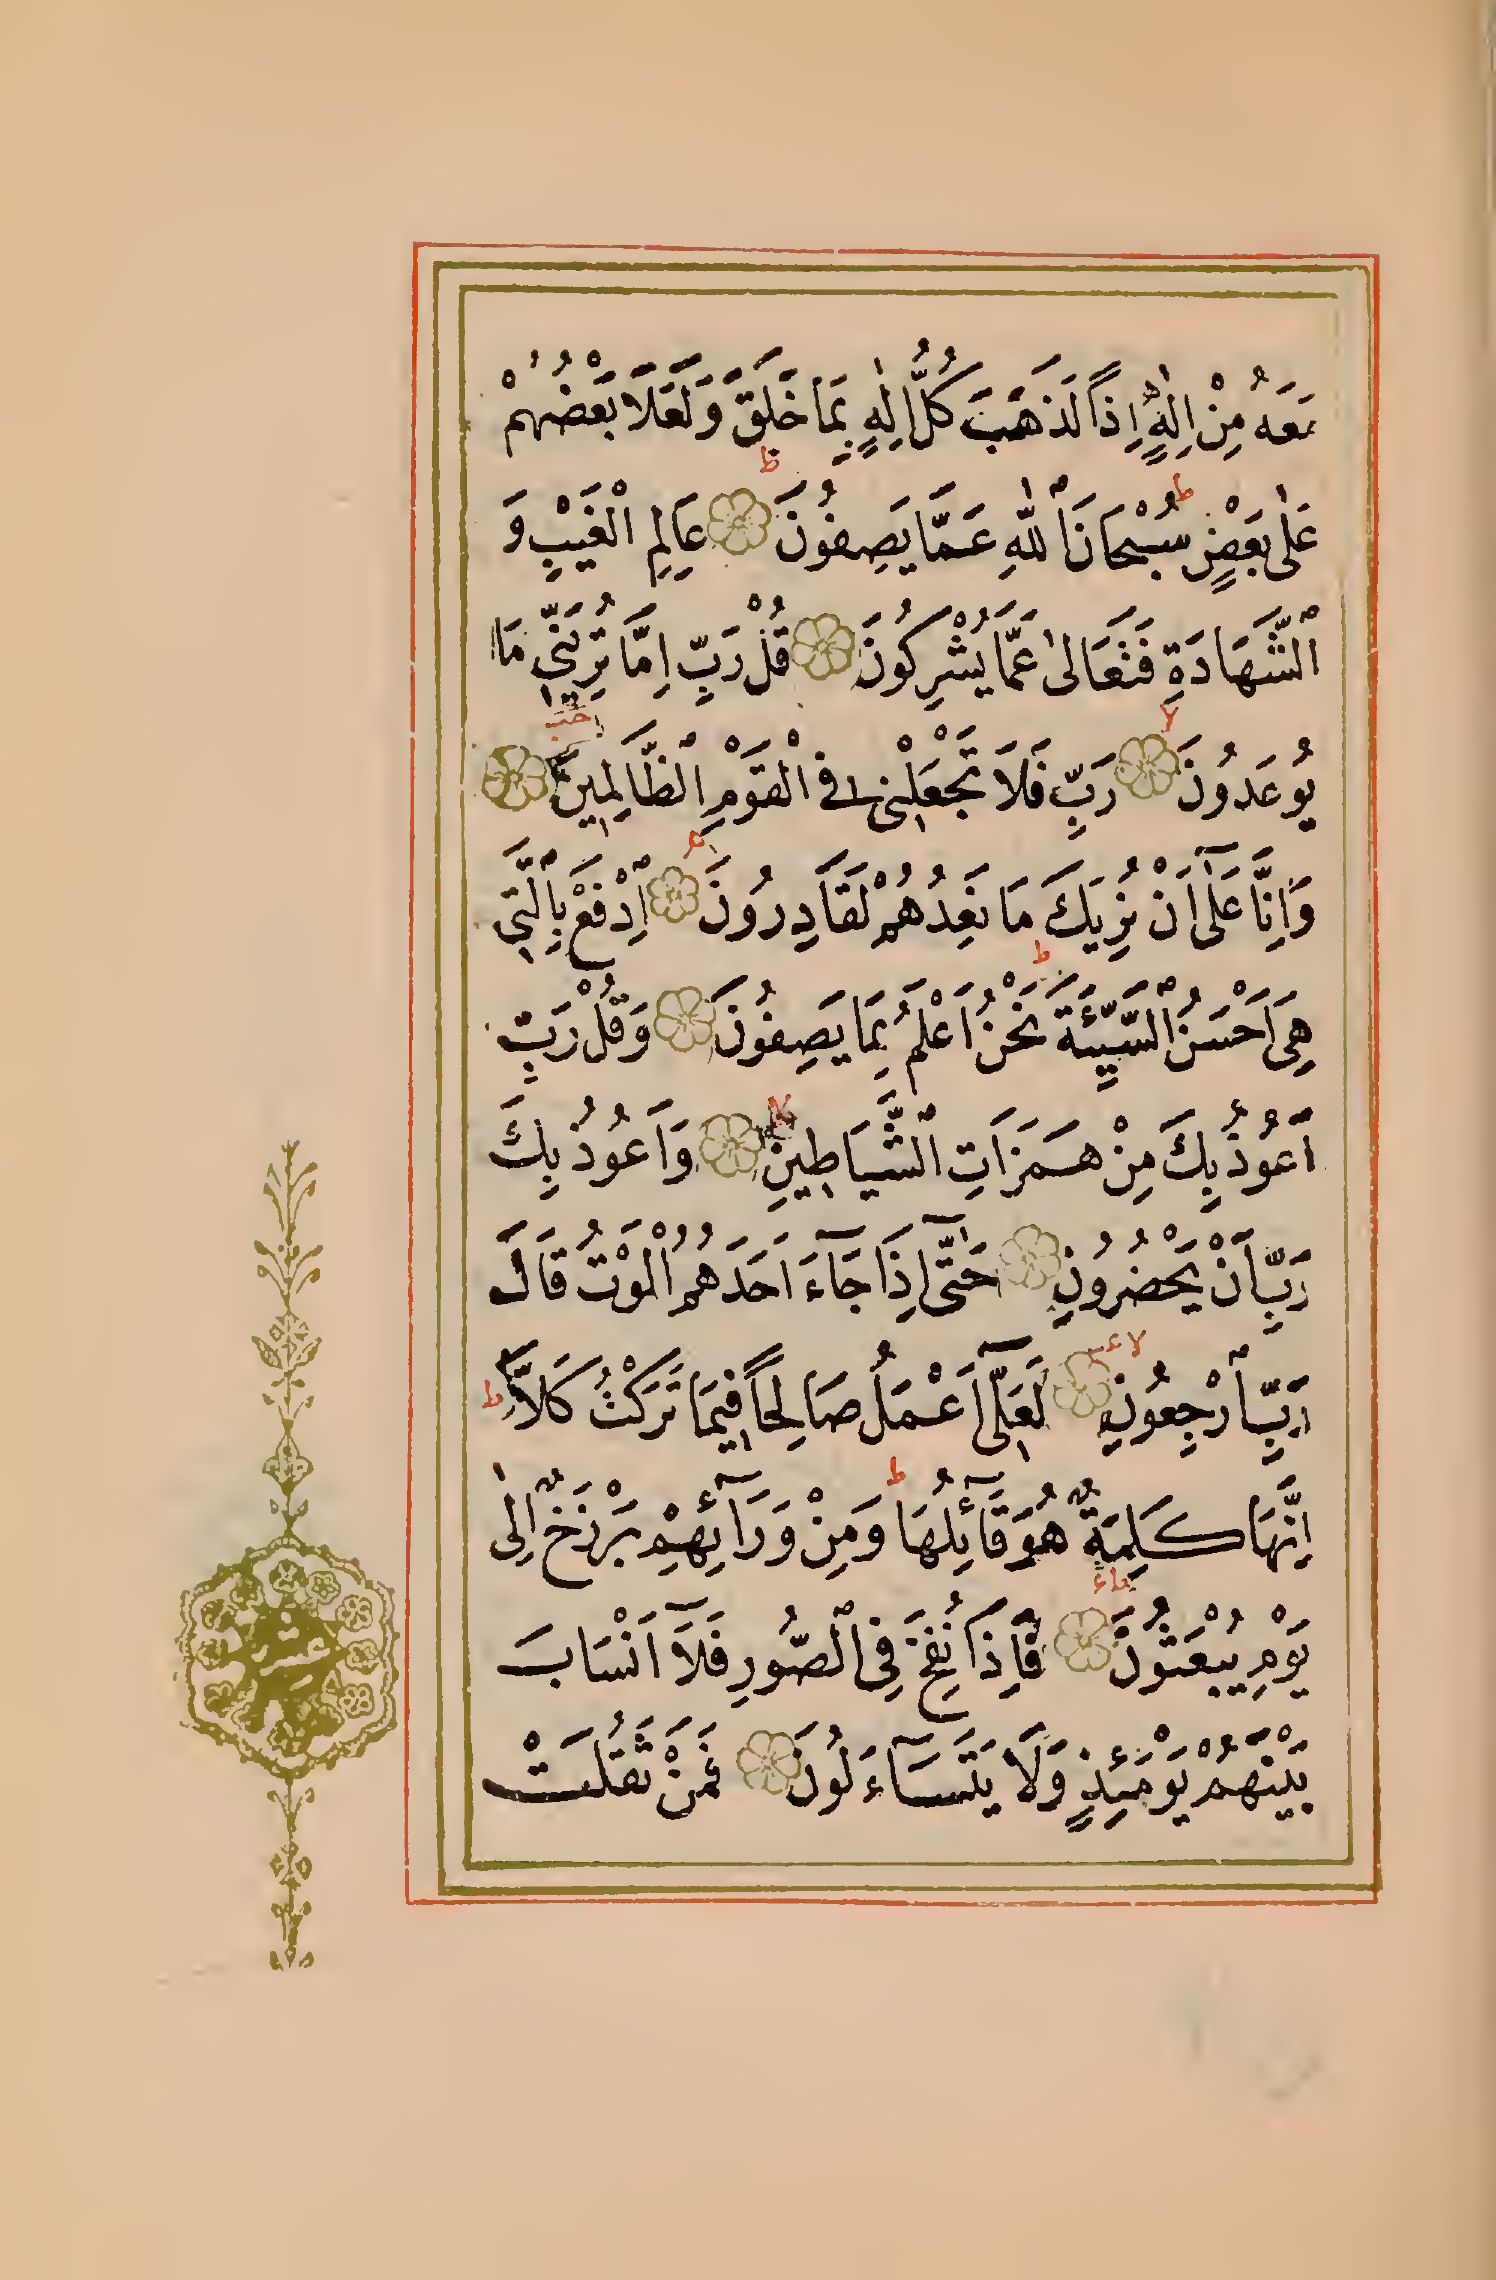 مَعَهُ مِنْ اِلٰهٍ اِذًا لَذَهَبَ كُلُّ اِلٰهٍ بِمَا خَلَقَ وَلَعَلَا بَعْضُهُمْ
عَلٰى بَعْضٍ ط سُبْحَانَ ٱللّٰهِ عَمَّا يَصِفُونَ ط عَالِمِ الْغَيْبِ وَ
ٱلشَّهَادَةِ فَتَعَالٰى عَمَّا يُشْرِكُونَ قُلْ رَبِّ اِمَّا تُرِيَنِّى مَا
يُوعَدُونَ لا رَبِّ فَلَا تَجْعَلْنِى فِى الْقَوْمِ ٱلظَّالِمِينَ
وَاِنَّا عَلٰٓى اَنْ نُرِيَكَ مَا نَعِدُهُمْ لَقَادِرُونَ اِدْفَعْ بِٱلَّتِى
هِىَ اَحْسَنُ ٱلسَّيِّئَةَ ط نَحْنُ اَعْلَمُ بِمَا يَصِفُونَ وَقُلْ رَبِّ
اَعُوذُ بِكَ مِنْ هَمَزَاتِ ٱلشَّيَاطِينِ لا وَاَعُوذُ بِكَ
رَبِّ اَنْ يَحْضُرُونِ حَتّٰٓى اِذَا جَآءَ اَحَدَهُمُ الْمَوْتُ قَالَ
رَبِّ ٱرْجِعُونِ لا لَعَلِّىٓ اَعْمَلُ صَالِحًا فِيمَا تَرَكْتُ كَلَّا ط
اِنَّهَا كَلِمَةٌ هُوَ قَآئِلُهَا ط وَمِنْ وَرَآئِهِمْ بَرْزَخٌ اِلٰى
يَوْمِ يُبْعَثُونَ فَاِذَا نُفِخَ فِى ٱلصُّورِ فَلَآ اَنْسَابَ
بَيْنَهُمْ يَوْمَئِذٍ وَلَا يَتَسَآءَلُونَ فَمَنْ ثَقُلَتْ